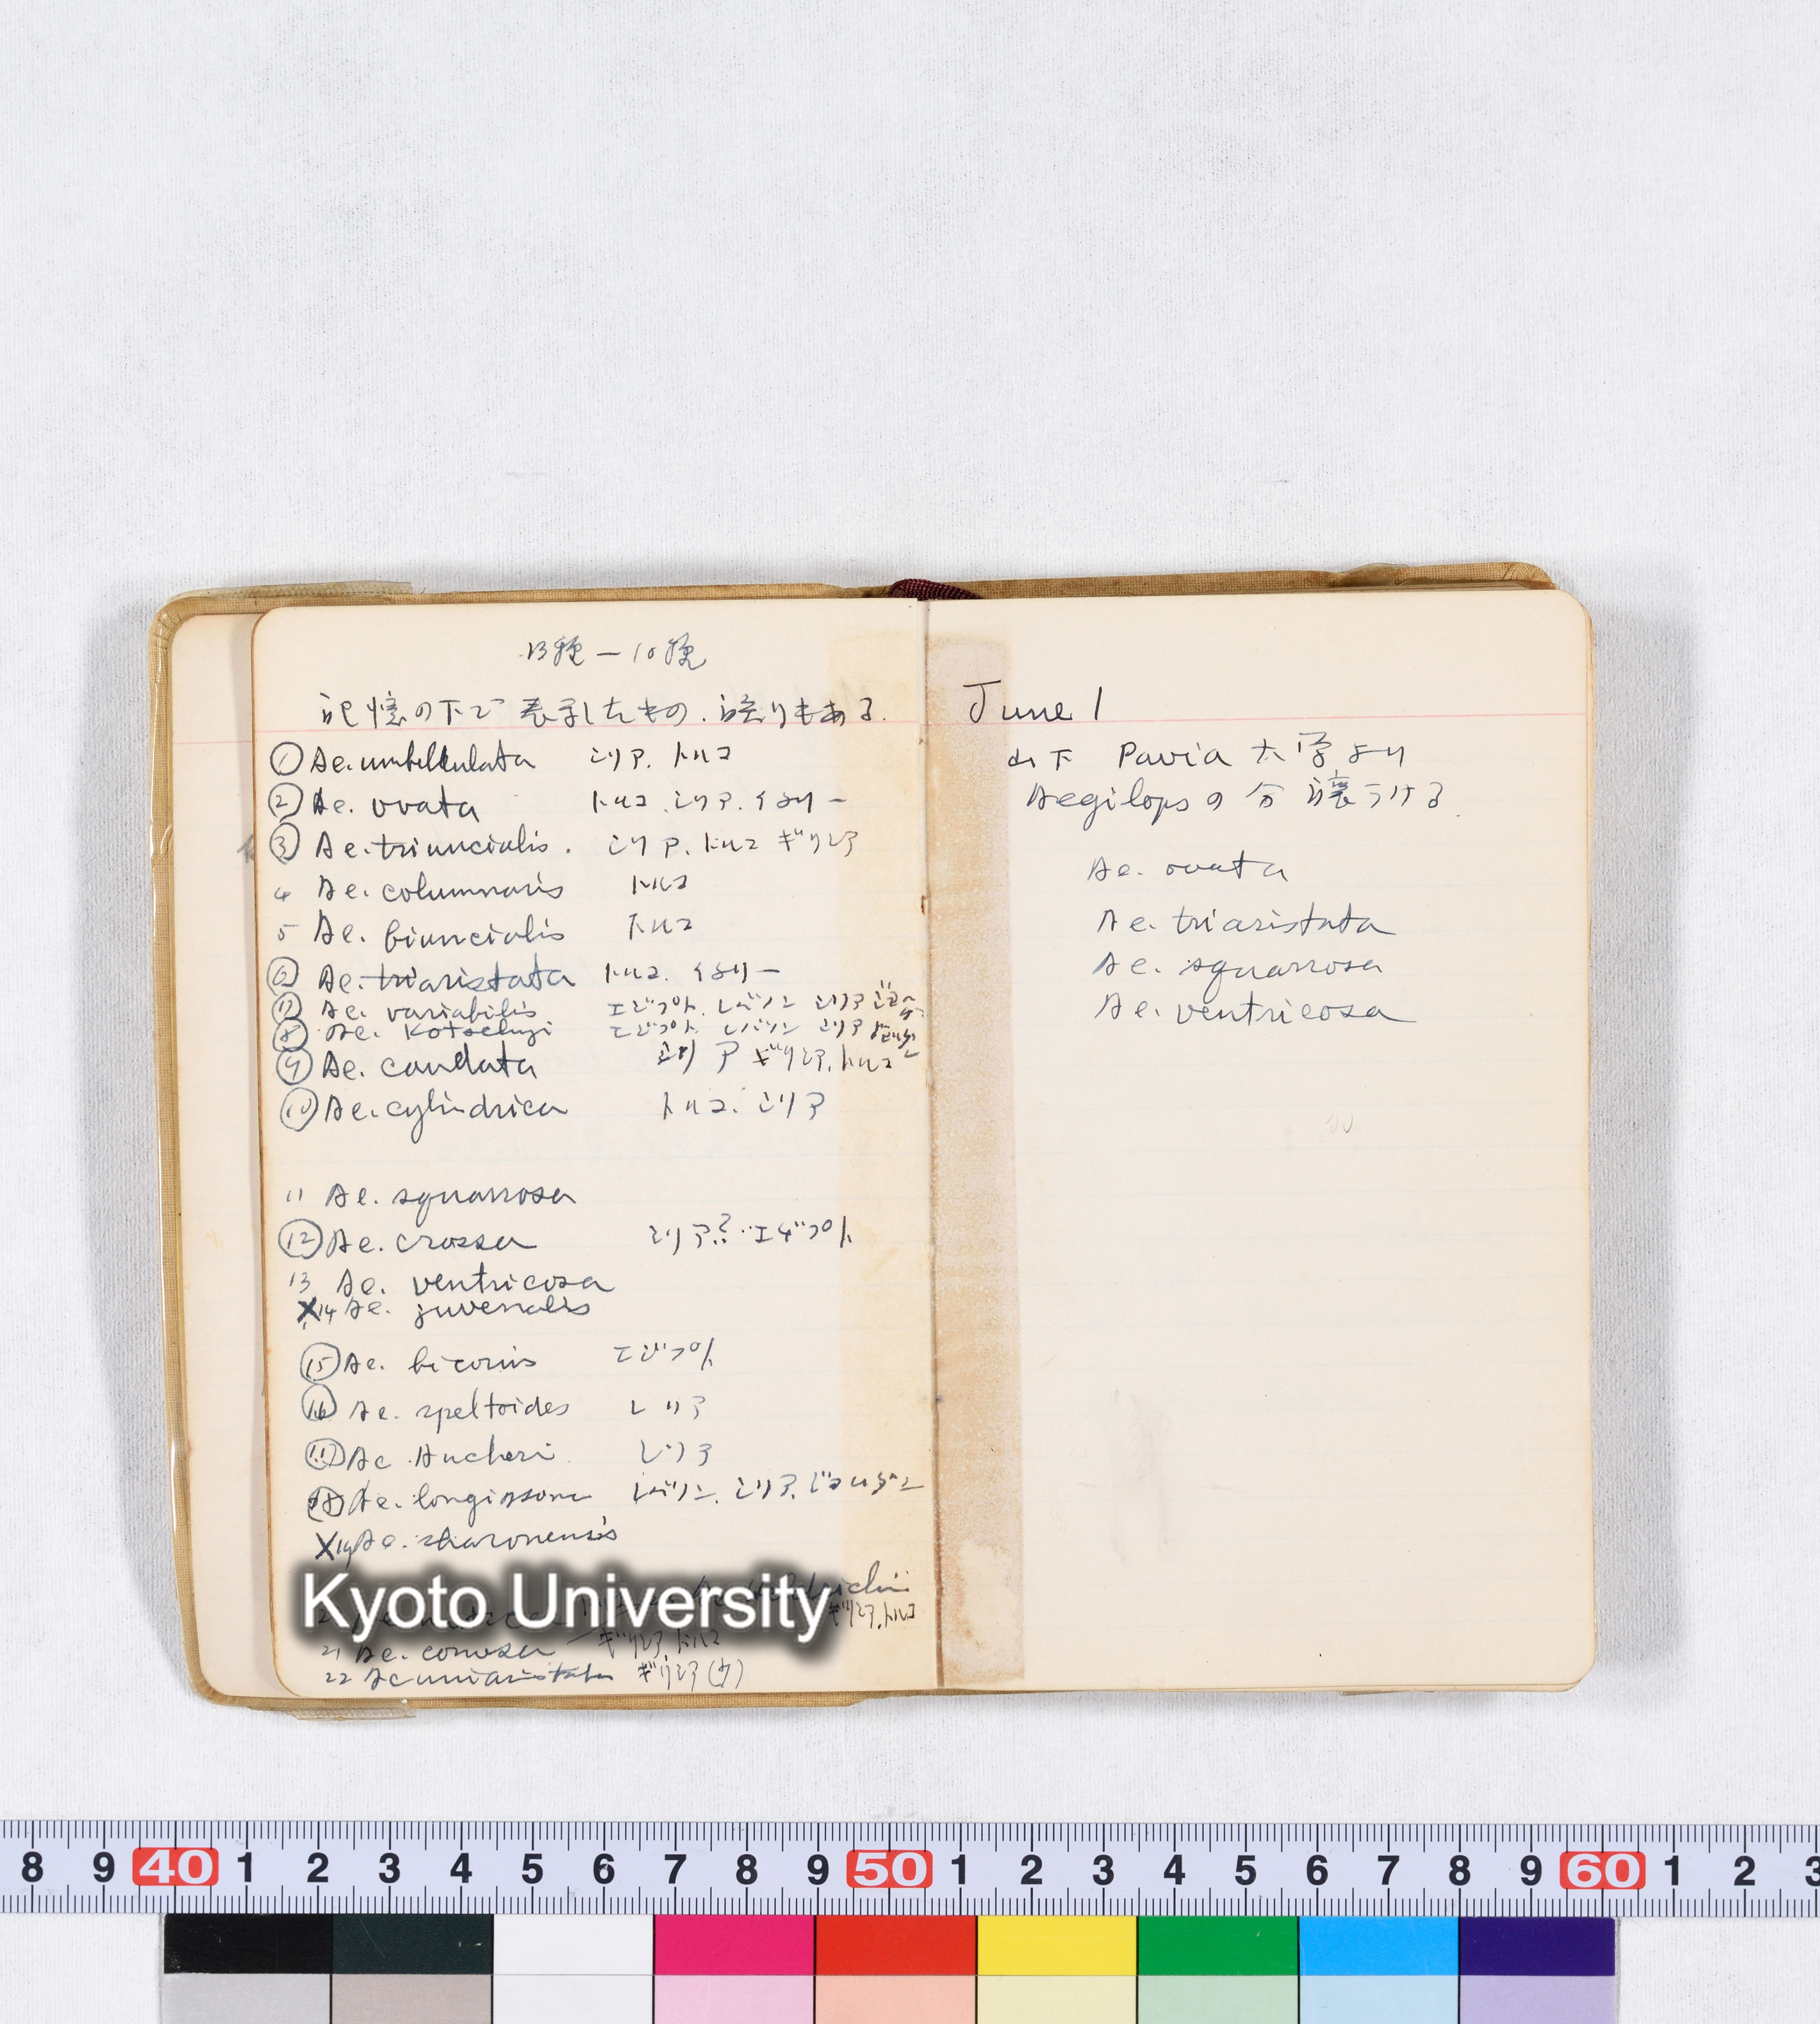 13種 — 10種
記憶の下で表示したもの．誤りもある．
① Ae. umbellulata シリア．トルコ
② Ae. ovata トルコ．シリア．イタリー
③ Ae. triuncialis． シリア．トルコ ギリシア
4 Ae. columnaris トルコ
5 Ae. biuncialis トルコ
⑥ Ae. triaristata トルコ．イタリー
⑦ Ae. variabilis エジプト．レバノン シリア
⑧ Ae. Kotschyi エジプト レバノン シリア
⑨ Ae. caudata シリア ギリシア．トルコ
⑩ Ae. cylindrica トルコ．シリア
11 Ae. squarrosa
⑫ Ae. crassa シリア？ エヂプト
13 Ae. ventricosa
X14 Ae. juvenalis
⑮ Ae. bicornis エジプト
⑯ Ae. speltoides シリア
⑰ Ae. Aucheri シリア
⑱ Ae. longissima レバノン．シリア．ジョルダン
X19 Ae. sharonensis
ギリシア．トルコ
21 Ae. comosa ギリシア トルコ
22 Ae uniaristata ギリシア
June 1
山下 Pavia 大学より
Aegilopsの分譲うける．
Ae. ovata
Ae. triaristata
Ae. squarrosa
Ae. ventricosa
Kyoto University
8 9 40 1 2 3 4 5 6 7 8 9 50 1 2 3 4 5 6 7 8 9 60 1 2 3